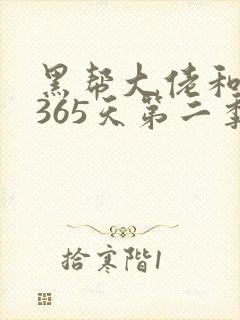 黑帮大佬和
365天第二季
拾寒阶1